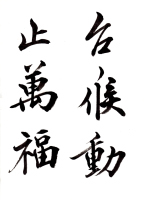 台候動
止萬福